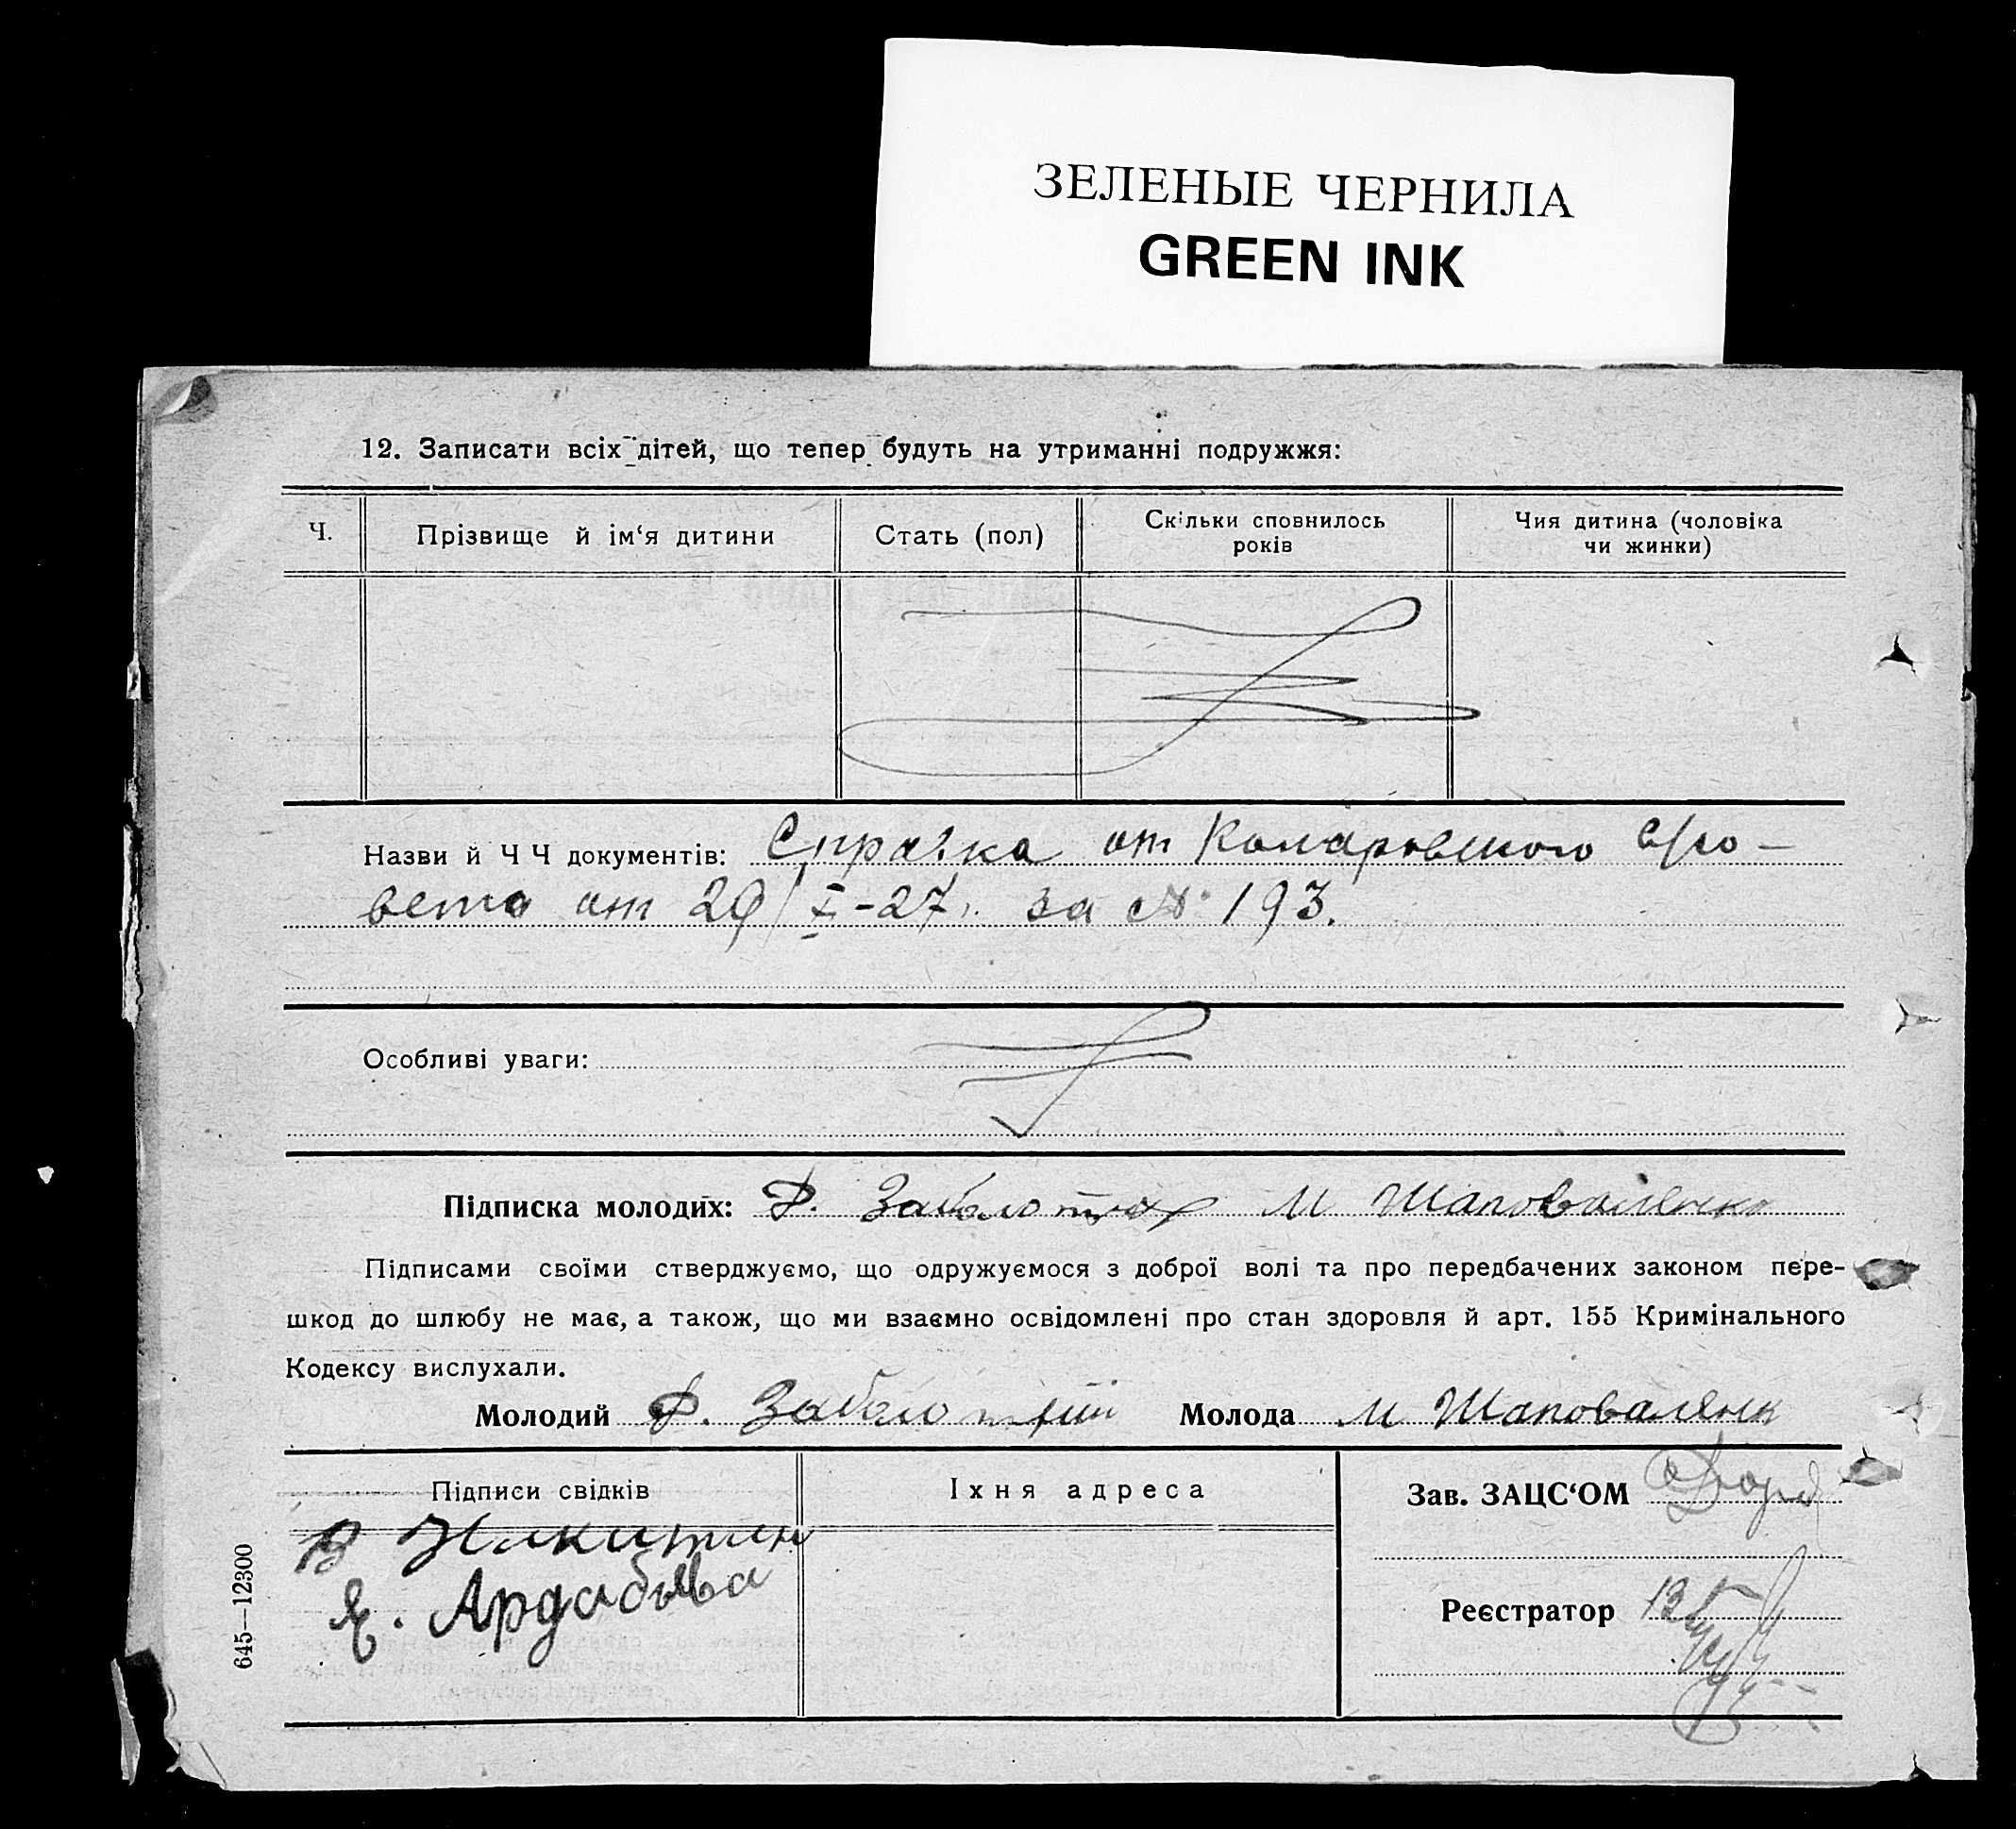 ЗЕЛЕНЫЕ ЧЕРНИЛА
GREEN INK
12. Записати всіх дітей, що тепер будуть на утриманні подружжя:
Ч.
Прізвище й ім‘я дитини
Стать (пол)
Скільки сповнилось
років
Чия дитина (чоловіка
чи жинки)
Назви й Ч Ч документів: Справка от Комаровского с/со-
вета от 29/X-27г. за № 193.
Особливі уваги:
Підписка молодих: Ф. Заболотн М Шаповаленко
Підписами своїми стверджуємо, що одружуємося з доброї волі та про передбачених законом пере-
шкод до шлюбу не має, а також, що ми взаємно освідомлені про стан здоровля й арт. 155 Кримінального
Кодексу вислухали.
Молодий Ф. Заболотний Молода М Шаповалянк
Підписи свідків
Їхня адреса
Зав. ЗАЦС‘ОМ
В Никитин
Е. Ардабьева
Реєстратор
645—12300